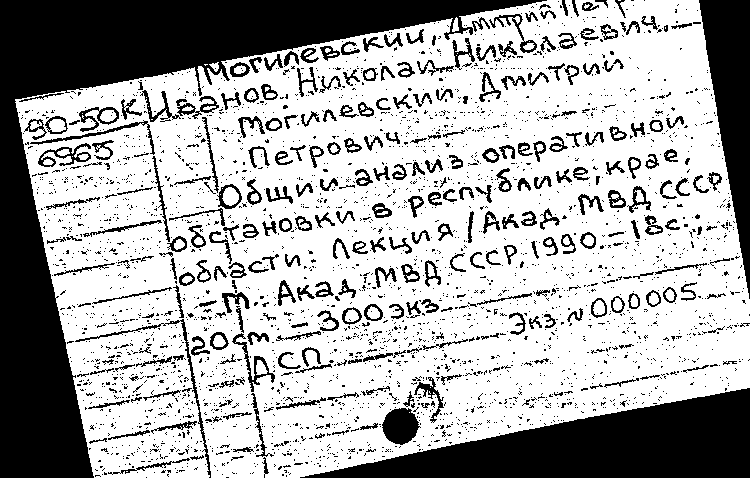 Могилевский, Дмитрий Петр
Иванов, Николай Николаевич,
90-50К
6965
Могилевский, Дмитрий
Петрович
Общий анализ оперативной
обстановки в республике, крае,
области: Лекция / Акад. МВД СССР
– М.: Акад. МВД СССР, 1990. – 18с.;
20 см. – 300 экз.
Экз. N 000005
ДСП.